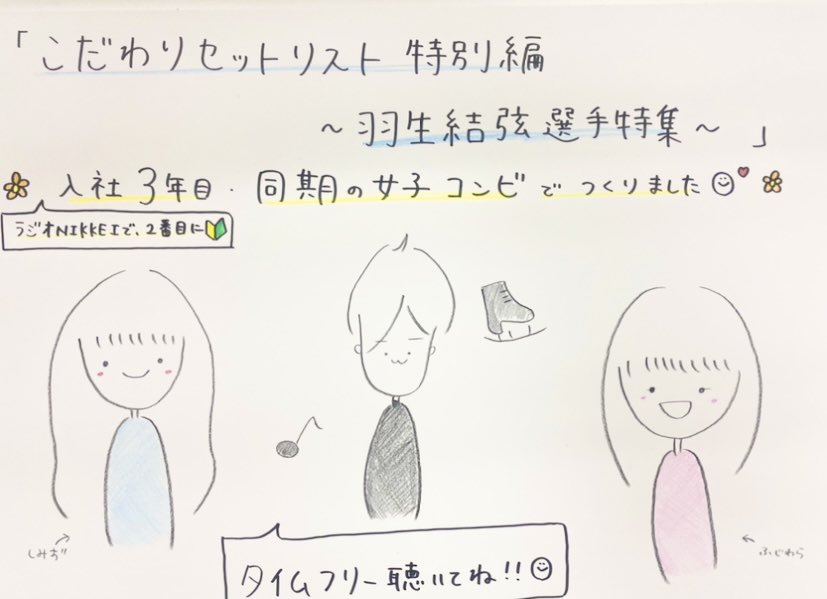 「こだわりセットリスト 特別編
～羽生結弦選手特集～」
入社3年目・同期の女子コンビでつくりました
ラジオNIKKEIで、2番目に
しみず
ふじわら
タイムフリー聴いてね!!